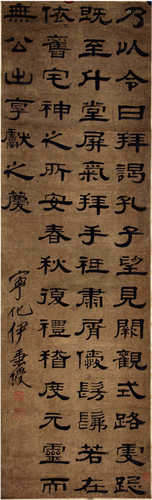 乃以令日拜謁孔子望見闕觀式路虔跽
既至升堂屏氣拜手祗肅屑僾髣髴若在
依舊宅神之所安春秋復禮稽度元靈而
無公出享獻之薦
寧化伊秉綬